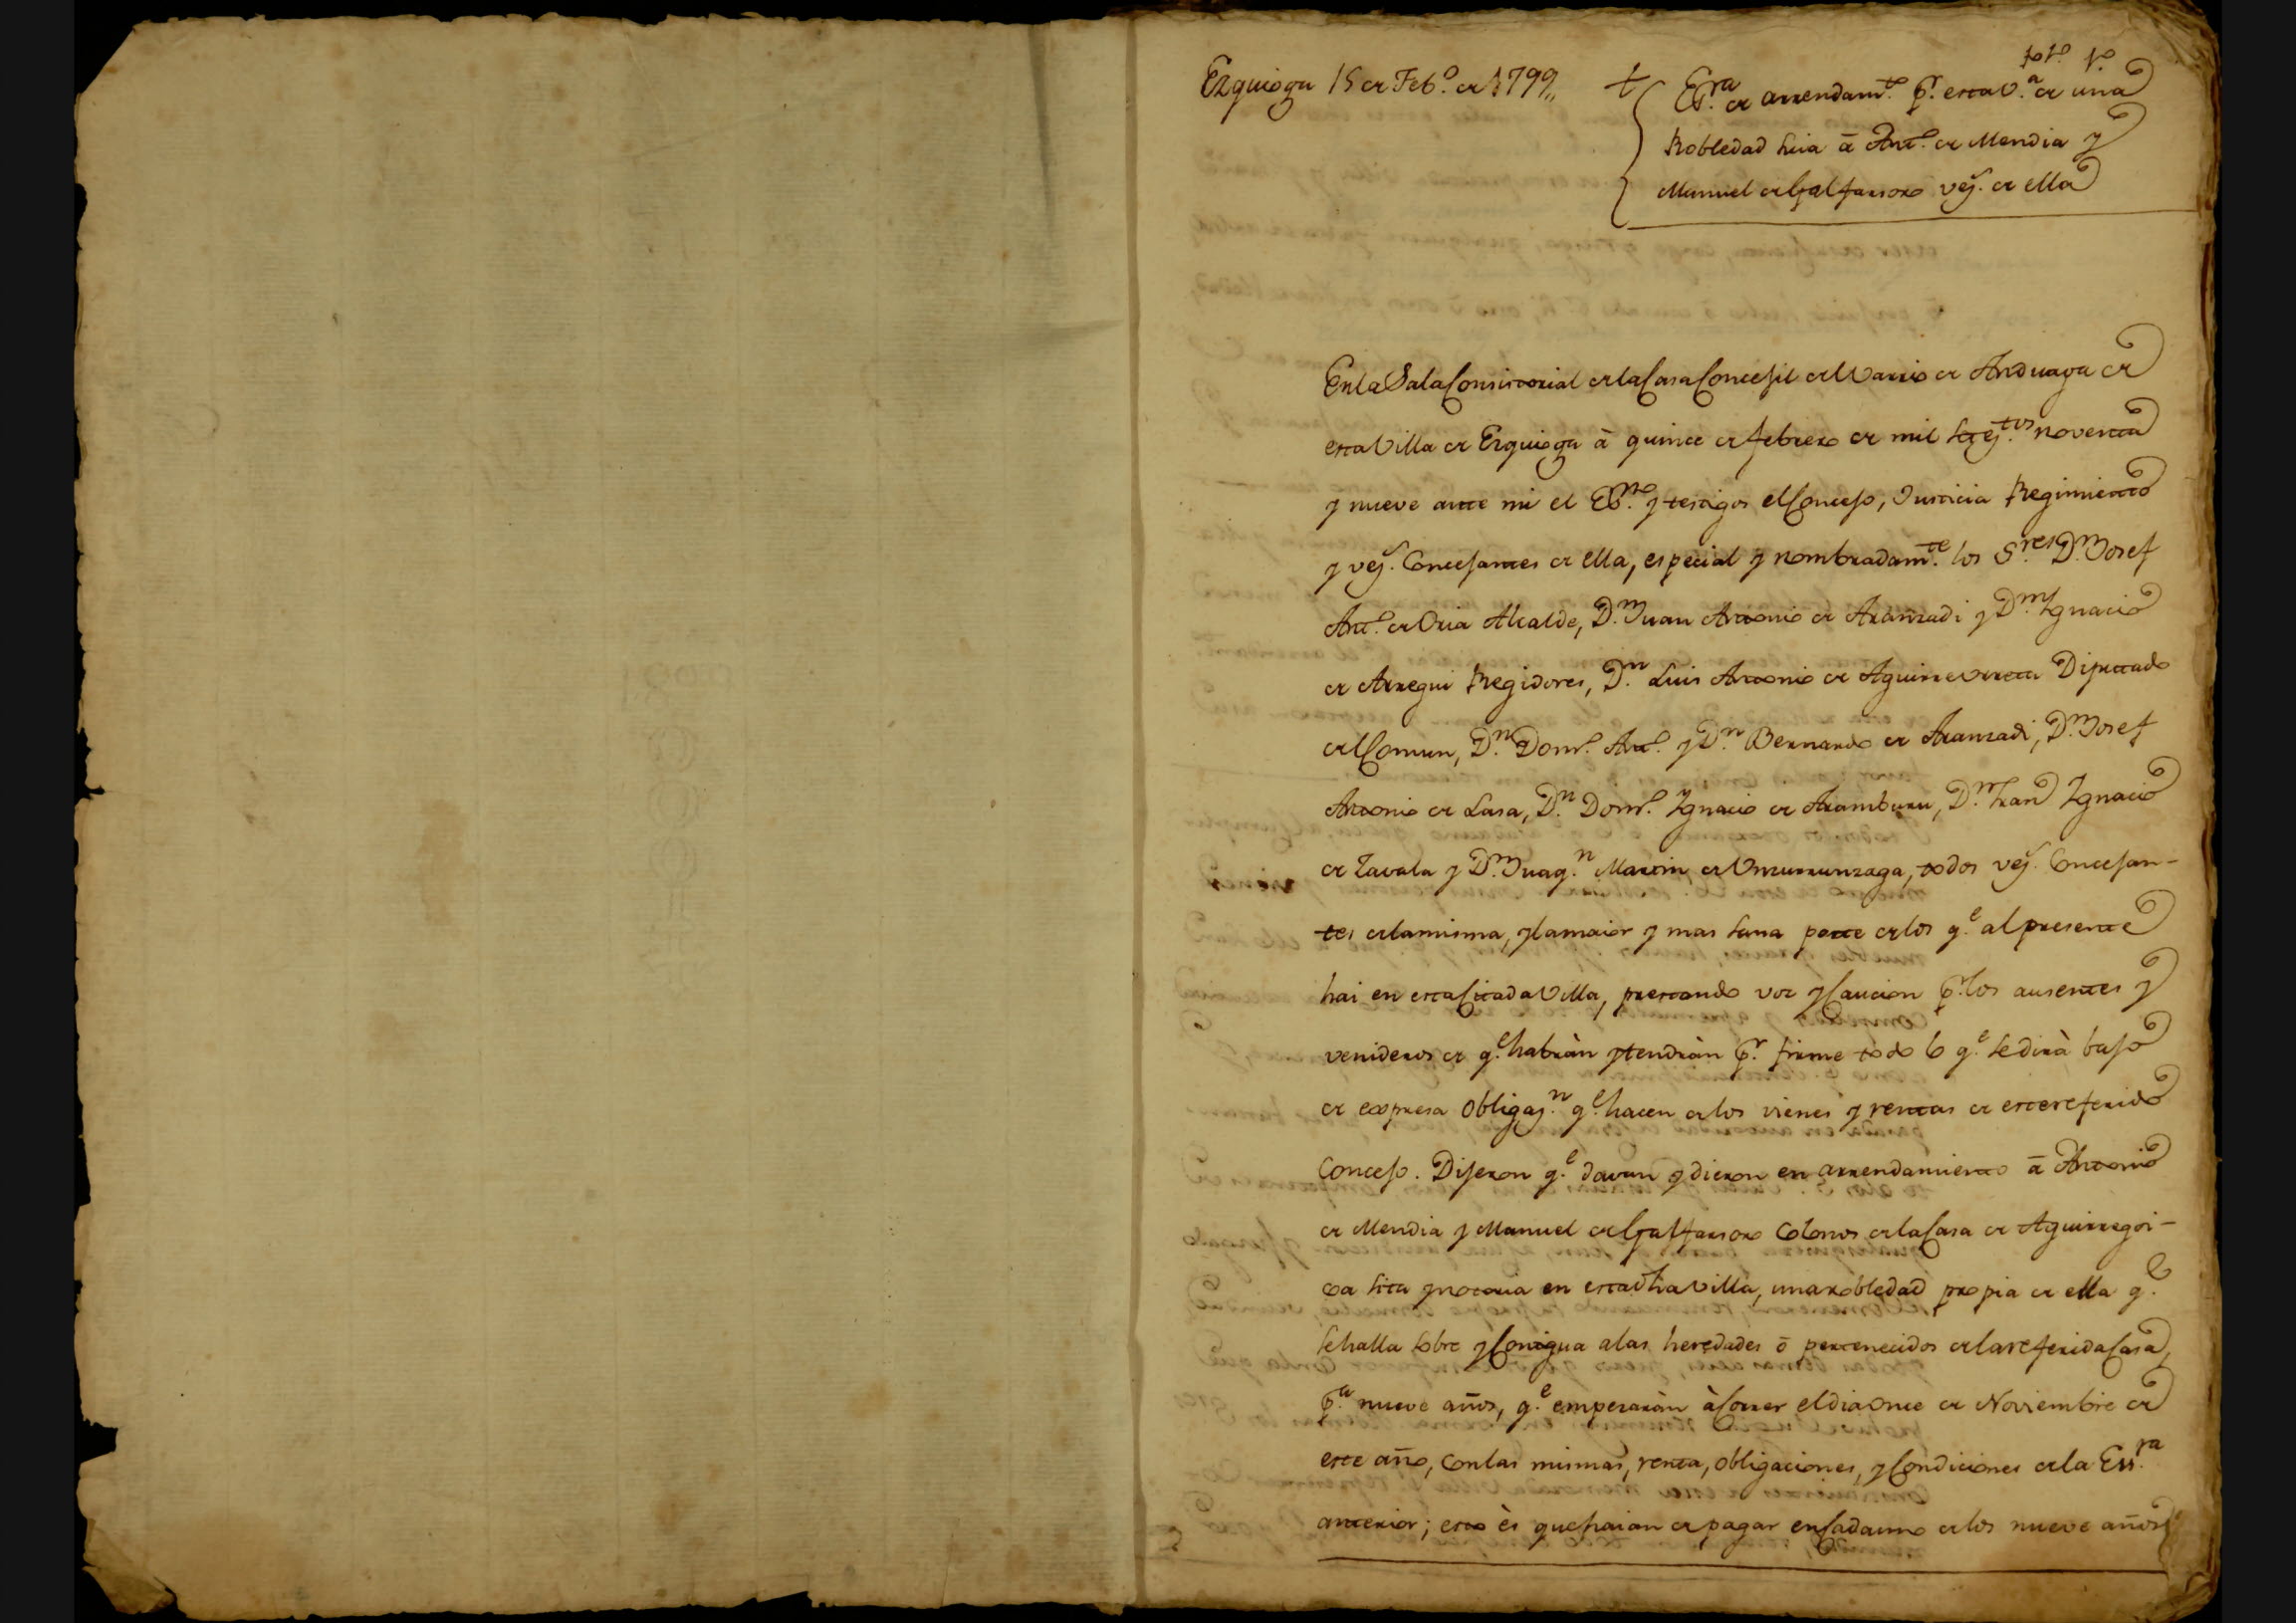 fol.º 1.º
Ezquioga 15 de Feb.º de 1799,,
+
Es.ra de arrendam.to p.r esta V.a de una
Robledad suia à Ant.º de Mendia y
Manuel de Galfarsoro vez.s de ella
En la Sala Consistorial de la Casa Concejil del Varrio de Anduaga de
esta Villa de Ezquioga à quince de febrero de mil setez.tos noventa
y nueve ante mi el Es.no y testigos el Concejo, Justicia Regimiento
y vez.s Concejantes de ella, especial y nombradam.te los S.res D.n Josef
Ant.º de Oria Alcalde, D.n Juan Antonio de Aranzadi y D.n Ygnacio
de Arregui Regidores, D.n Luis Antonio de Aguirreurreta Diputado
del Comun, D.n Dom.º Ant.º y D.n Bernardo de Aranzadi, D.n Josef
Antonio de Lasa, D.n Dom.º Ygnacio de Aramburu, D.n Fran.co Ygnacio
de Zavala y D.n Juaq.n Martin de Unzurrunzaga, todos vez.s Concejan-
tes de la misma, y la maior y mas sana parte de los q.e al presente
hai en esta Citada Villa, prestando voz y Caucion p.r los ausentes y
venideros de q.e habràn y tendràn p.r firme todo lo q.e se dirà bajo
de expresa obligaz.n q.e hacen de los vienes y rentas de este referido
Concejo. Dijeron q.e davan y dieron en arrendamiento à Antonio
de Mendia y Manuel de Galfarsoro Colonos de la Casa de Aguirregoi-
coa sita y notoria en esta dha Villa, una robledad propia de ella q.e
se halla sobre y Contigua a las heredades ò pertenecidos de la referida Casa,
p.a nueve años, q.e empezaràn à Correr el dia Once de Noviembre de
este año, con las mismas, renta, obligaciones, y Condiciones de la Ess.ra
anterior; esto ès que haian de pagar en Cada uno de los nueve años